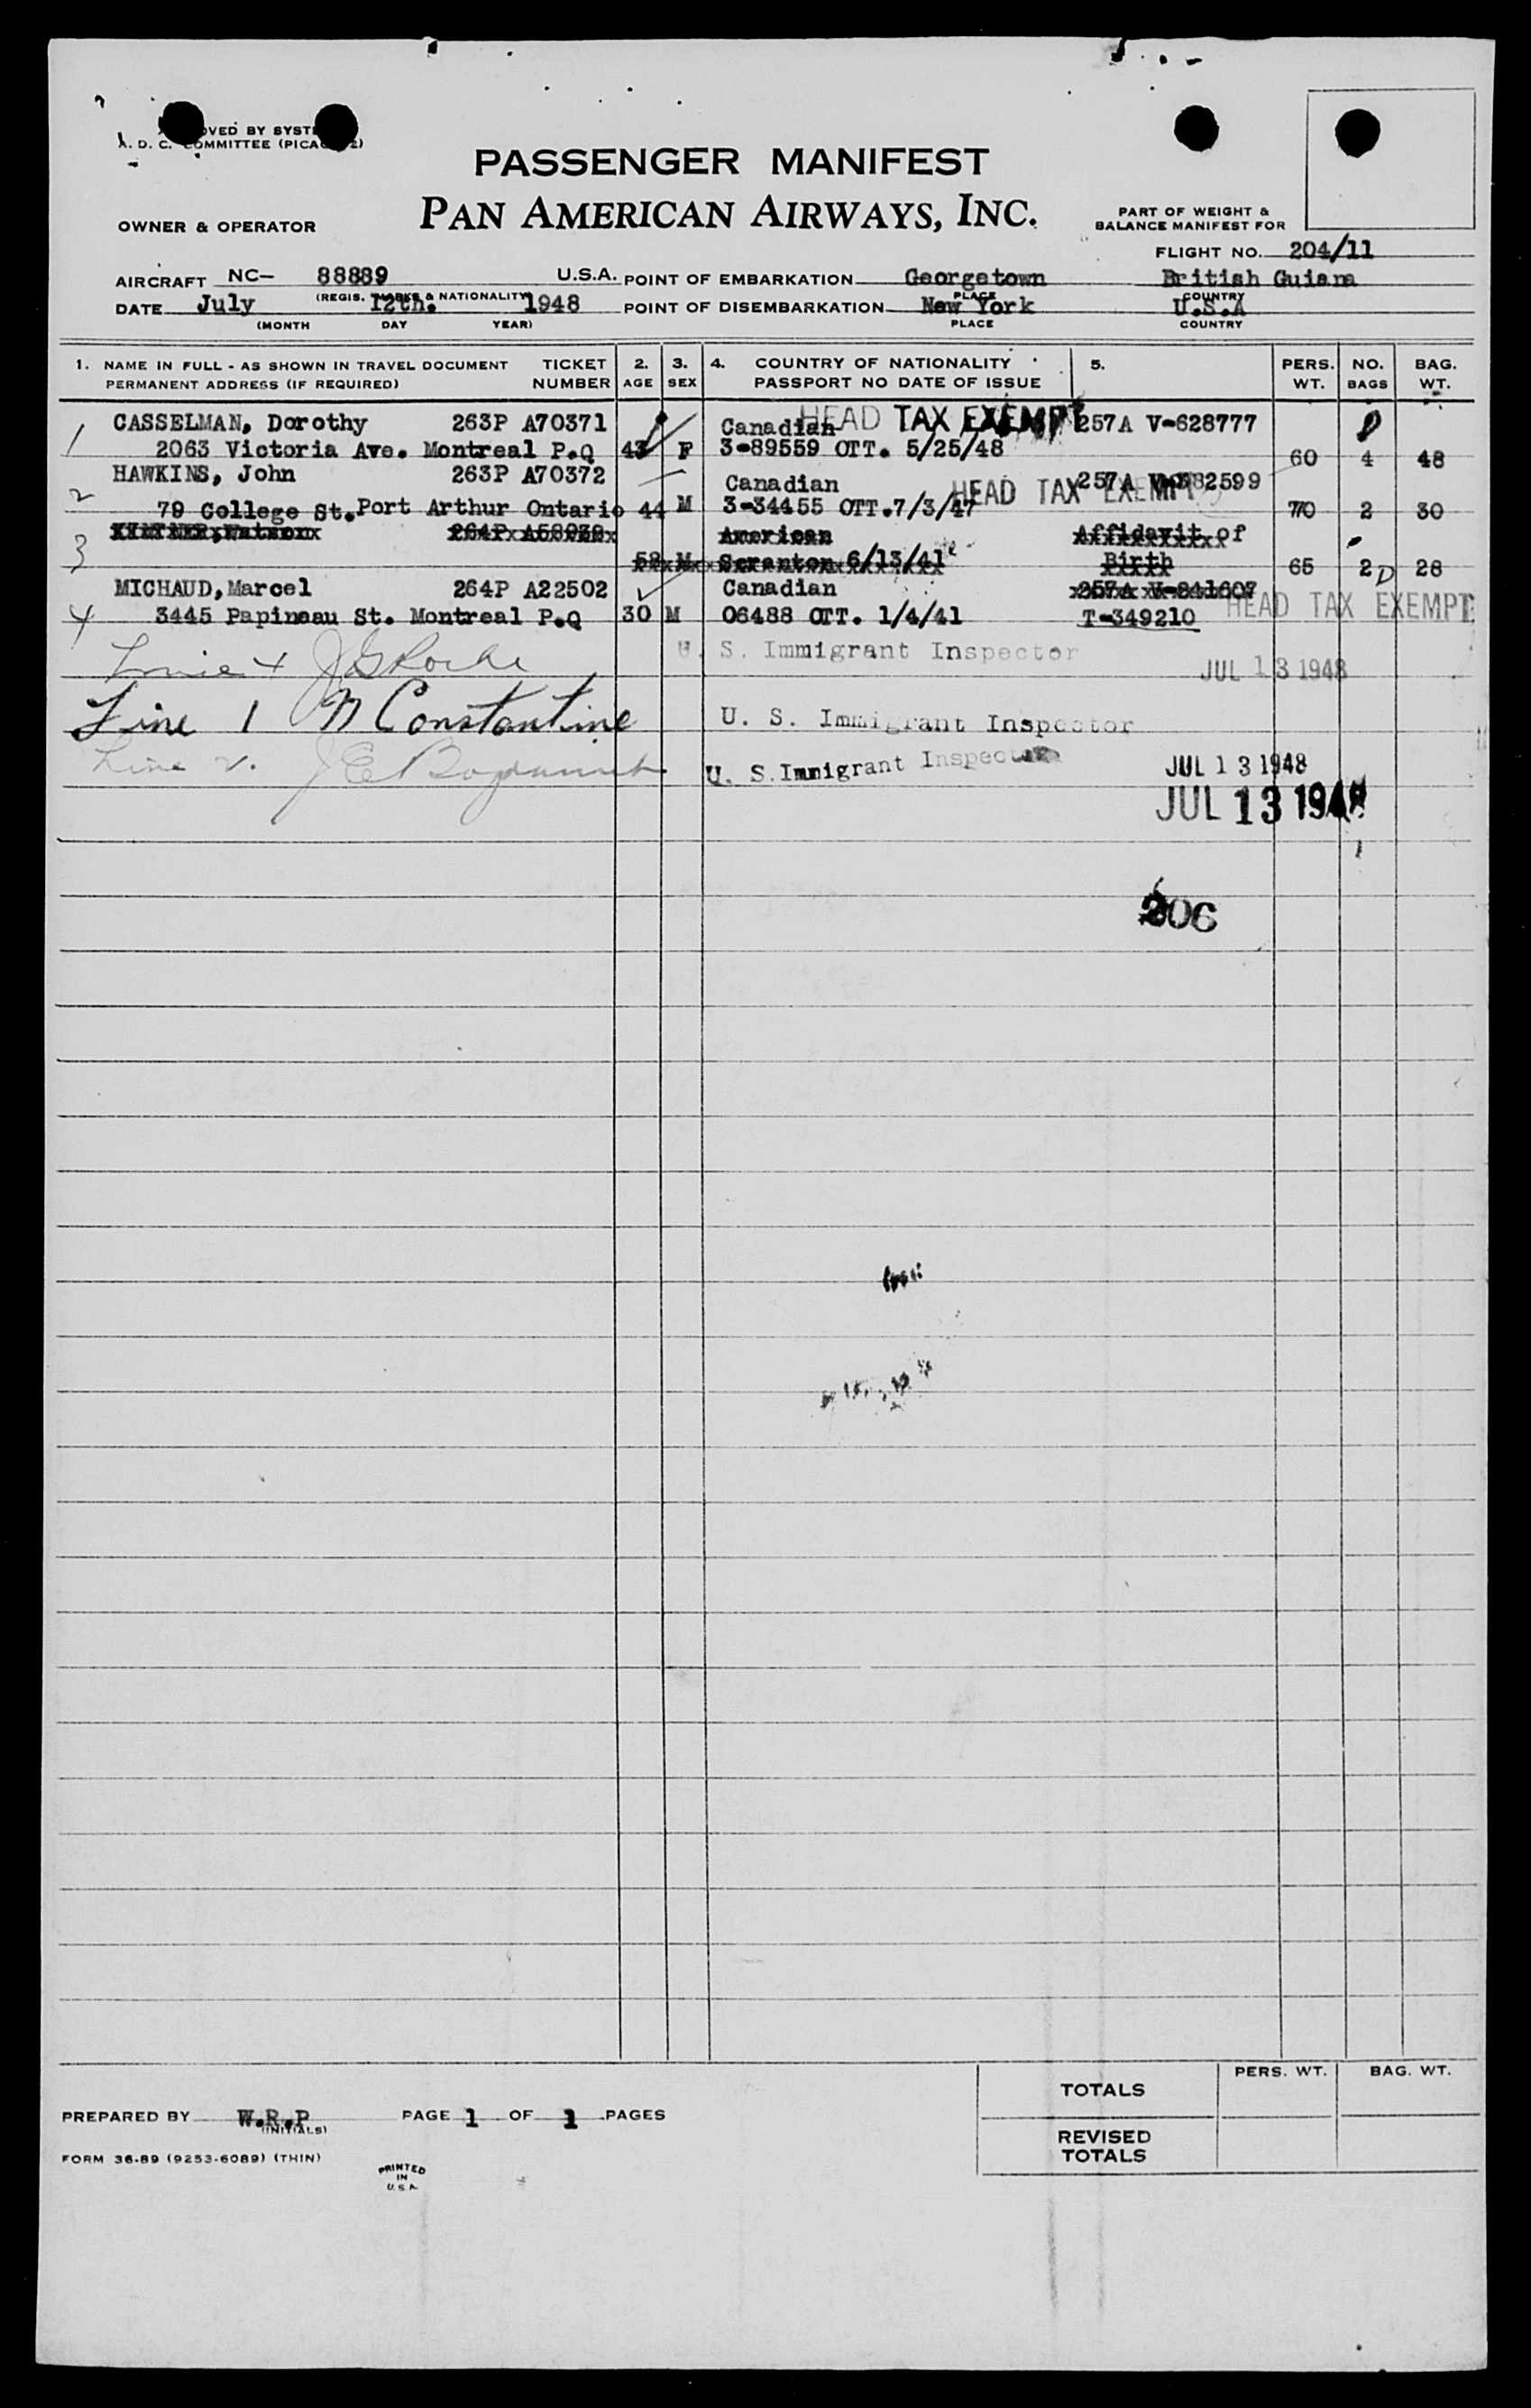 OVED BY SYST
A. D. C. COMMITTEE (PICA
PASSENGER MANIFEST
PAN AMERICAN AIRWAYS, INC.
OWNER & OPERATOR
PART OF WEIGHT &
BALANCE MANIFEST FOR
FLIGHT NO. 204/11
AIRCRAFT NC- 88889 U.S.A. POINT OF EMBARKATION Georgetown British Guiana
(REGIS. MARKS & NATIONALITY) PLACE COUNTRY
DATE July 12th. 1948 POINT OF DISEMBARKATION New York U.S.A
(MONTH DAY YEAR) PLACE COUNTRY
1. NAME IN FULL - AS SHOWN IN TRAVEL DOCUMENT TICKET 2. 3. 4. COUNTRY OF NATIONALITY 5. PERS. NO. BAG.
PERMANENT ADDRESS (IF REQUIRED) NUMBER AGE SEX PASSPORT NO DATE OF ISSUE WT. BAGS WT.
CASSELMAN, Dorothy 263P A70371 Canadian HEAD TAX EXEMPT 257A V-628777
1 2063 Victoria Ave. Montreal P.Q 43 F 3-89559 OTT. 5/25/48 60 4 48
HAWKINS, John 263P A70372 Canadian HEAD TAX EXEMPT 257A 82599
2 79 College St. Port Arthur Ontario 44 M 3-34455 OTT.7/3/47 70 2 30
264P A58939 American Affidavit of
3 52 M Scranton 6/13/41 Birth 65 2 28
MICHAUD, Marcel 264P A22502 Canadian 257A V-841607
4 3445 Papineau St. Montreal P.Q 30 M 06488 OTT. 1/4/41 T-349210 HEAD TAX EXEMPT
Line 4 J G Roche U. S. Immigrant Inspector JUL 13 1948
Line 1 N Constantine U. S. Immigrant Inspector
Line 2. U. S. Immigrant Inspector JUL 13 1948
JUL 13 1948
206
TOTALS PERS. WT. BAG. WT.
PREPARED BY W.R.P PAGE 1 OF 1 PAGES
(INITIALS)
REVISED
TOTALS
FORM 36-89 (9253-6089) (THIN)
PRINTED
IN
U.S.A.